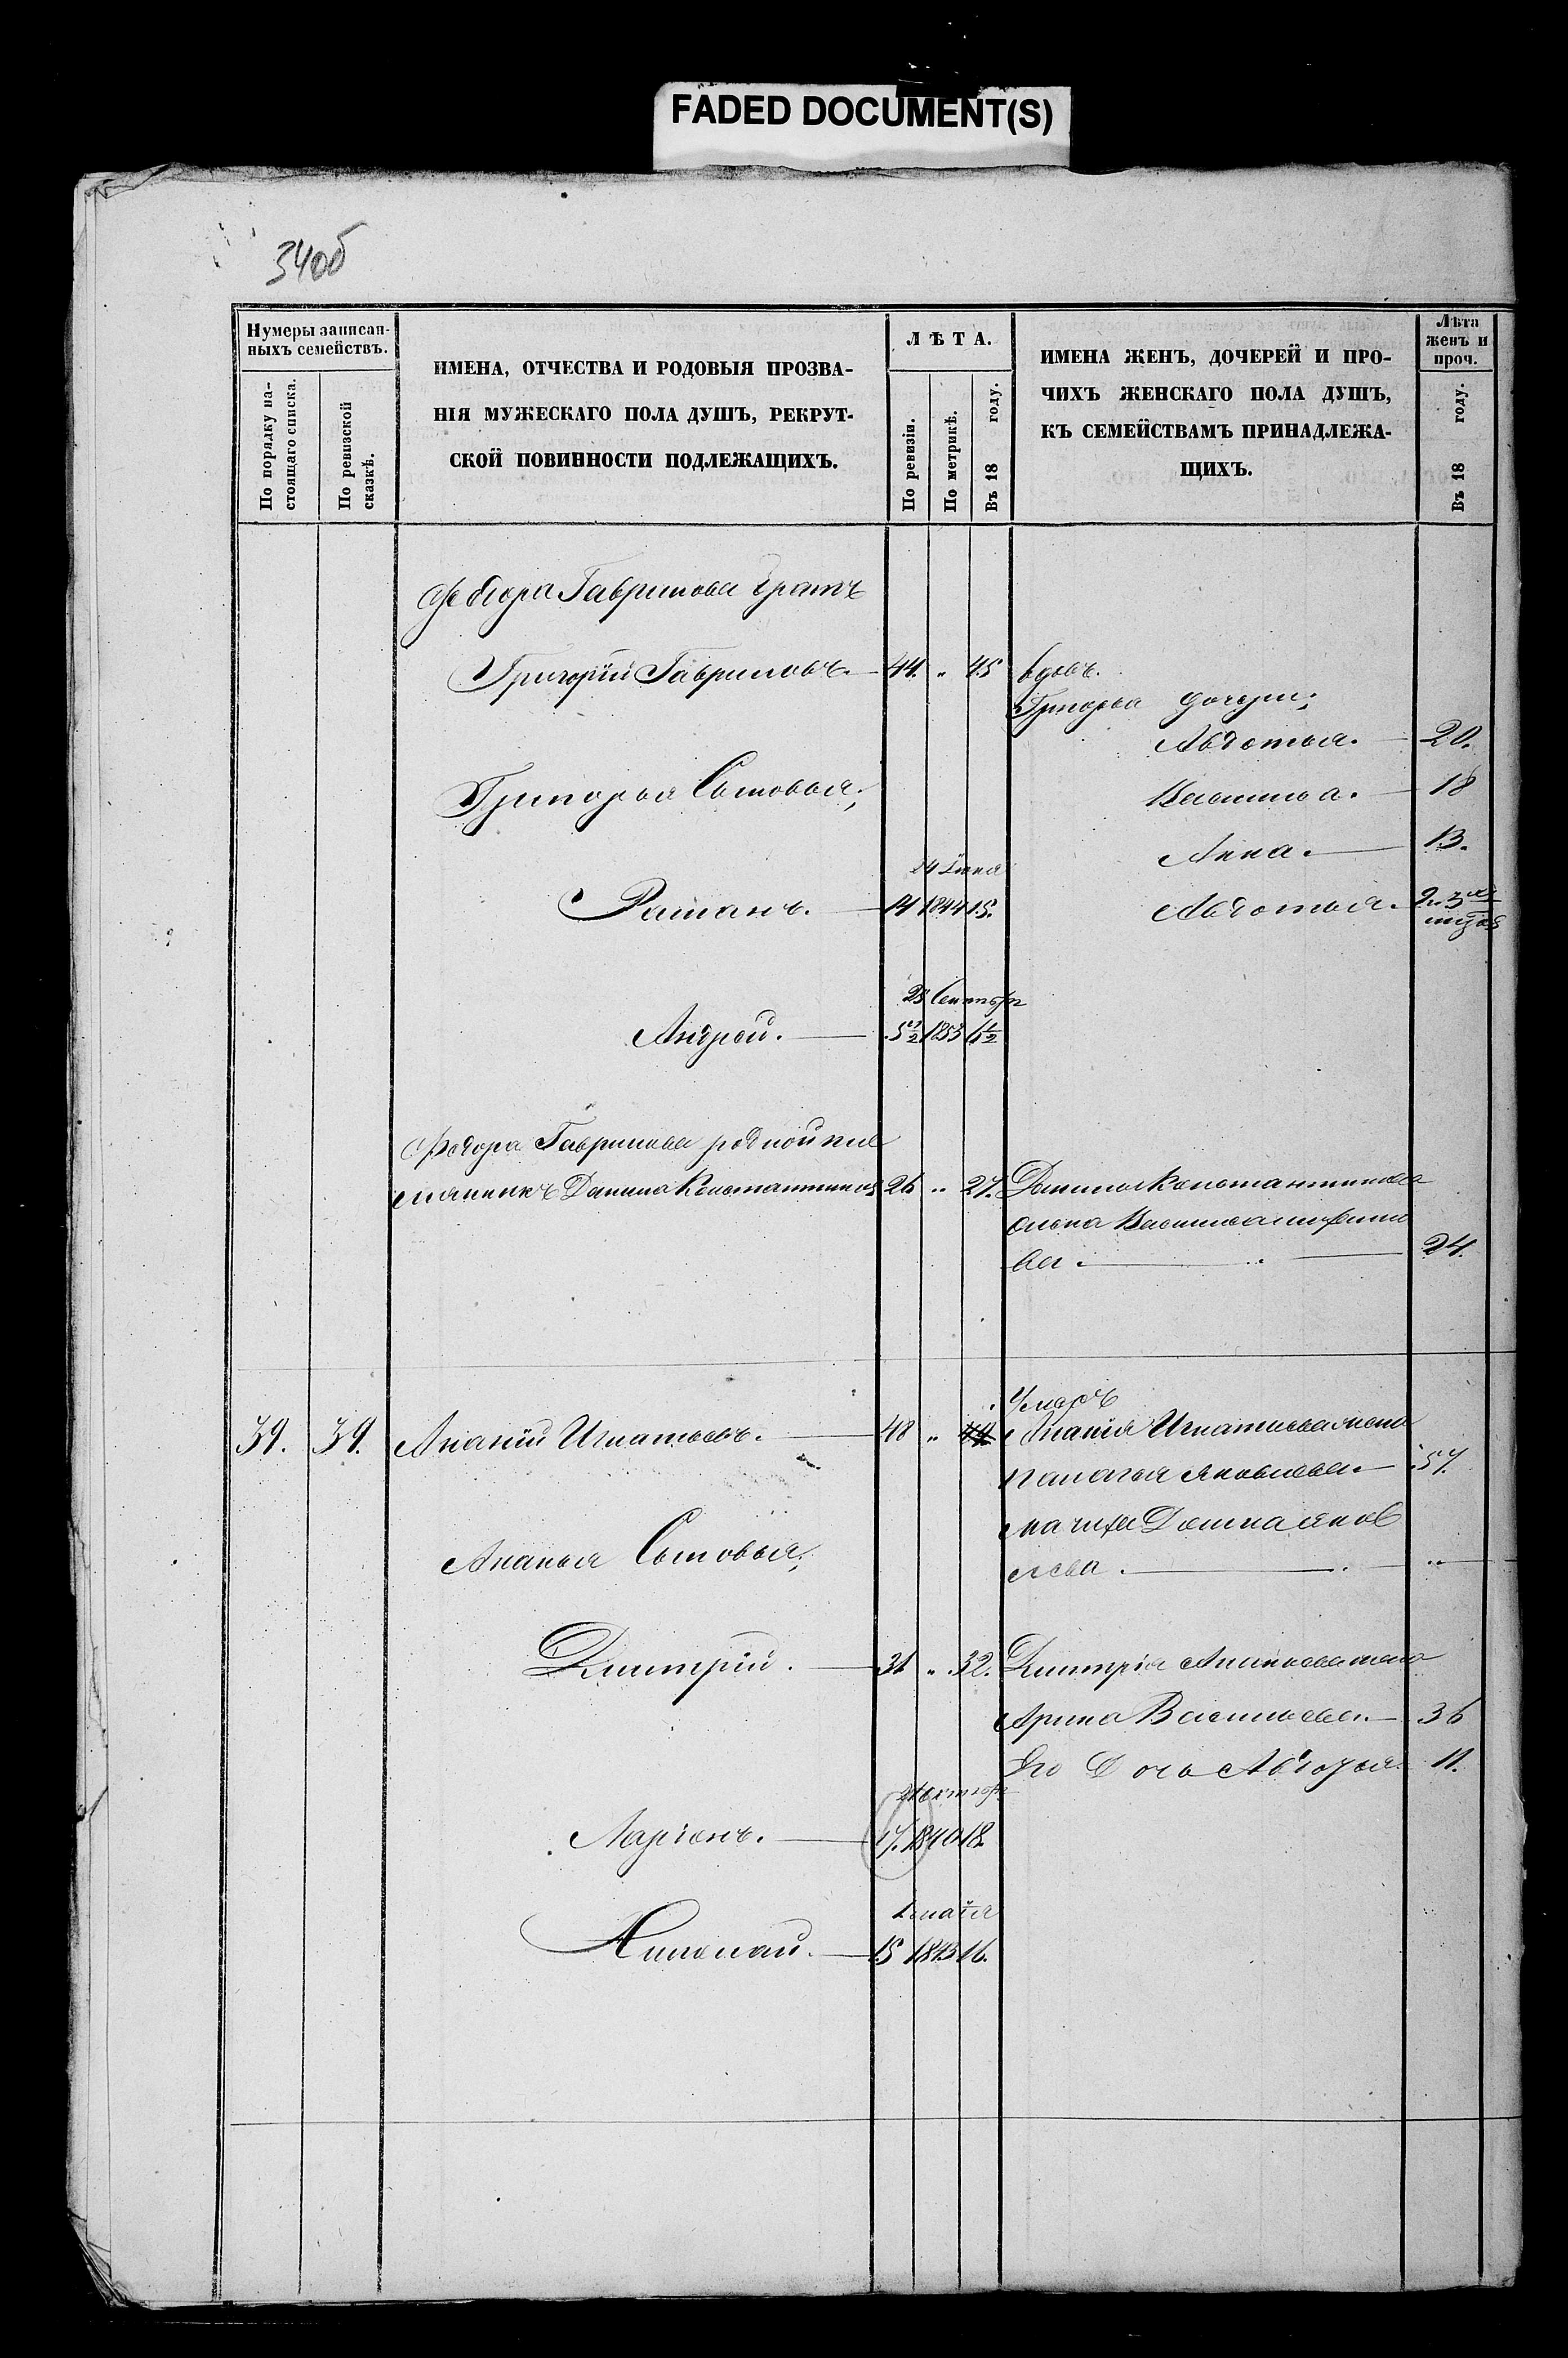 FADED DOCUMENT(S)
340б
Нумеры записан-
ныхъ семействъ.
По порядку на-
стоящаго списка.
По ревизской
сказкѣ.
ИМЕНА, ОТЧЕСТВА И РОДОВЫЯ ПРОЗВА-
НІЯ МУЖЕСКАГО ПОЛА ДУШЪ, РЕКРУТ-
СКОЙ ПОВИННОСТИ ПОДЛЕЖАЩИХЪ.
ЛѢТА.
По ревизіи.
По метрикѣ.
Въ 18 году.
ИМЕНА ЖЕНЪ, ДОЧЕРЕЙ И ПРО-
ЧИХЪ ЖЕНСКАГО ПОЛА ДУШЪ,
КЪ СЕМЕЙСТВАМЪ ПРИНАДЛЕЖА-
ЩИХЪ.
Лѣта
женъ и
проч.
Въ 18 году.
Федора Гаврилова братъ
Григорій Гавриловъ. 44. " 45 вдовъ.
Григорья дочери;
Авдотья. 20.
Григорья Сыновья; Василиса. 18
Анна. 13.
24 Іюня
Романъ. 14 1844 15. Авдотья. 2. 3
28 Сентябр
Андрей. 5 1/2 1853 6 1/2
Федора Гаврилова родной пле
мянникъ Данило Константиновъ 26 " 27. Данилы Константинова
жена Василиса
ва. 24.
Умеръ
39. 39. Ананій Игнатьевъ. 48 " Ананія Игнатьева жена
Палагея Яковлева 57.
мачиха Домна Яков
Ананья Сыновья;
лева. "
Дмитрій. 31 " 32. Дмитрія Ананьева жена
Арина Васильева. 36
Его Дочь Авдотья 11.
21 Октябр
Ларіонъ. 17. 1840 18.
1 маія
Николай. 15 1843 16.